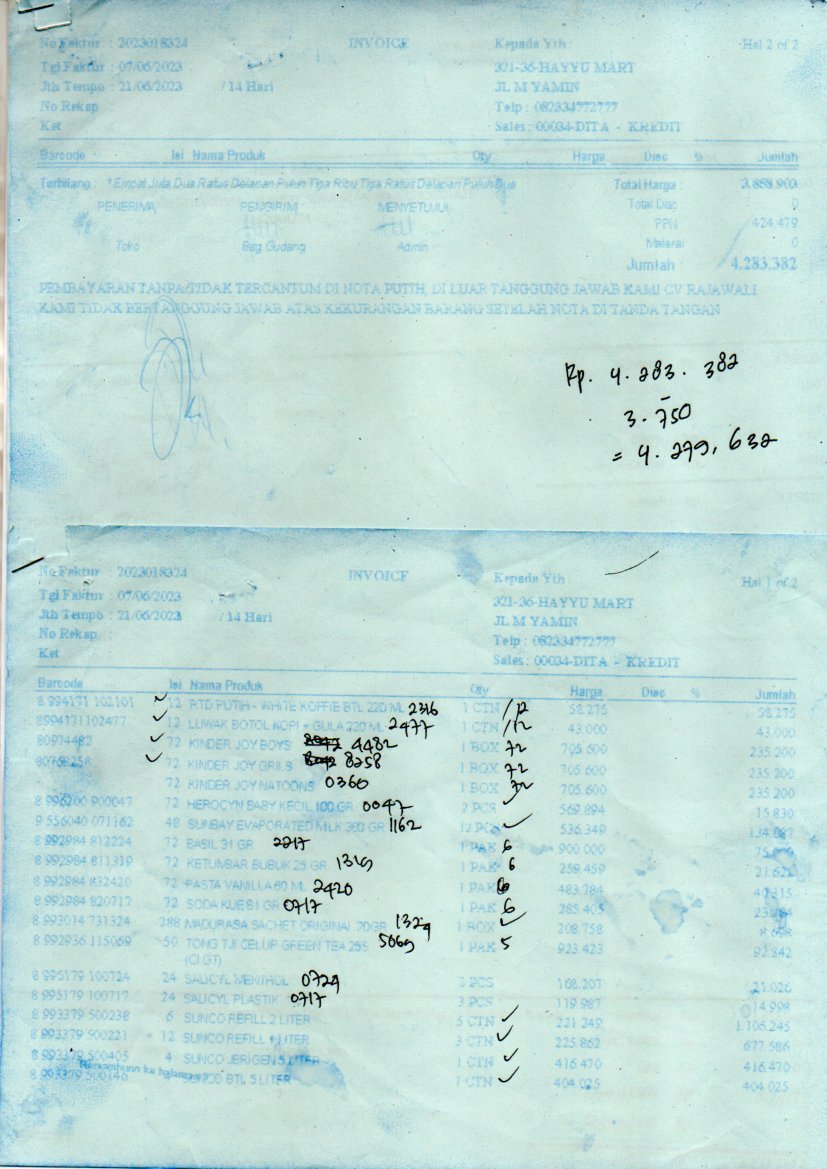 No Faktur : 2023018324 INVOICE Kepada Yth : Hal 2 of 2
Tgl Faktur : 07/06/2023 321-36-HAYYU MART
Jth Tempo : 21/06/2023 / 14 Hari JL M YAMIN
No Rekap : Telp : 082334772777
Ket Sales : 00034-DITA - KREDIT
Barcode Isi Nama Produk Qty Harga Disc % Jumlah
Terbilang : * Empat Juta Dua Ratus Delapan Puluh Tiga Ribu Tiga Ratus Delapan Puluh Dua Total Harga : 3.858.903
PENERIMA PENGIRIM MENYETUJUI Total Disc 0
PPN 424.479
Toko Bag Gudang Admin Materai 0
Jumlah : 4.283.382
PEMBAYARAN TANPA/TIDAK TERCANTUM DI NOTA PUTIH, DI LUAR TANGGUNG JAWAB KAMI CV RAJAWALI
KAMI TIDAK BERTANGGUNG JAWAB ATAS KEKURANGAN BARANG SETELAH NOTA DI TANDA TANGAN
Rp. 4.283.382
-
3.750
= 4.279,632
No Faktur : 2023018324 INVOICE Kepada Yth : Hal 1 of 2
Tgl Faktur : 07/06/2023 321-36-HAYYU MART
Jth Tempo : 21/06/2023 / 14 Hari JL M YAMIN
No Rekap : Telp : 082334772777
Ket Sales : 00034-DITA - KREDIT
Barcode Isi Nama Produk Qty Harga Disc % Jumlah
8 994171 102101 12 RTD PUTIH - WHITE KOFFIE BTL 220 ML 2316 1 CTN / 12 58.275 58.275
8994171102477 12 LUWAK BOTOL KOPI + GULA 220 ML 2477 1 CTN / 12 43.000 43.000
80974482 72 KINDER JOY BOYS 4482 1 BOX 72 705.600 235.200
80768258 72 KINDER JOY GRILS 8258 1 BOX 72 705.600 235.200
72 KINDER JOY NATOONS 0360 1 BOX 72 705.600 235.200
8 996200 900047 72 HEROCYN BABY KECIL 100 GR 0047 2 PCS 569.894 15.830
9 556040 071162 48 SUNBAY EVAPORATED MILK 380 GR 1162 12 PCS 536.349 134.087
8 992984 812224 72 BASIL 31 GR 2217 1 PAK 6 900.000
8 992984 811319 72 KETUMBAR BUBUK 25 GR 1319 1 PAK 6 259.459 21.622
8 992984 832420 72 PASTA VANILLA 60 ML 2420 1 PAK 6 483.784 40.315
8 992984 820717 72 SODA KUE 81 GR 0717 1 PAK 6 285.405 23.784
8 993014 731324 288 MADURASA SACHET ORIGINAL 20GR 1324 1 BOX 208.758 8.698
8 992936 115069 50 TONG TJI CELUP GREEN TEA 25S 5069 1 PAK 5 923.423 92.342
(CI GT)
8 995179 100724 24 SALICYL MENTHOL 0724 3 PCS 168.207 21.026
8 995179 100717 24 SALICYL PLASTIK 0717 3 PCS 119.987 14.998
8 993379 500238 6 SUNCO REFILL 2 LITER 5 CTN 221.249 1.106.245
8 993379 500221 12 SUNCO REFILL 1 LITER 3 CTN 225.862 677.586
8 993379 500405 4 SUNCO JERIGEN 5 LITER 1 CTN 416.470 416.470
8 993379 500146 4 SUNCO BTL 5 LITER 1 CTN 404.025 404.025
Bersambung ke halaman